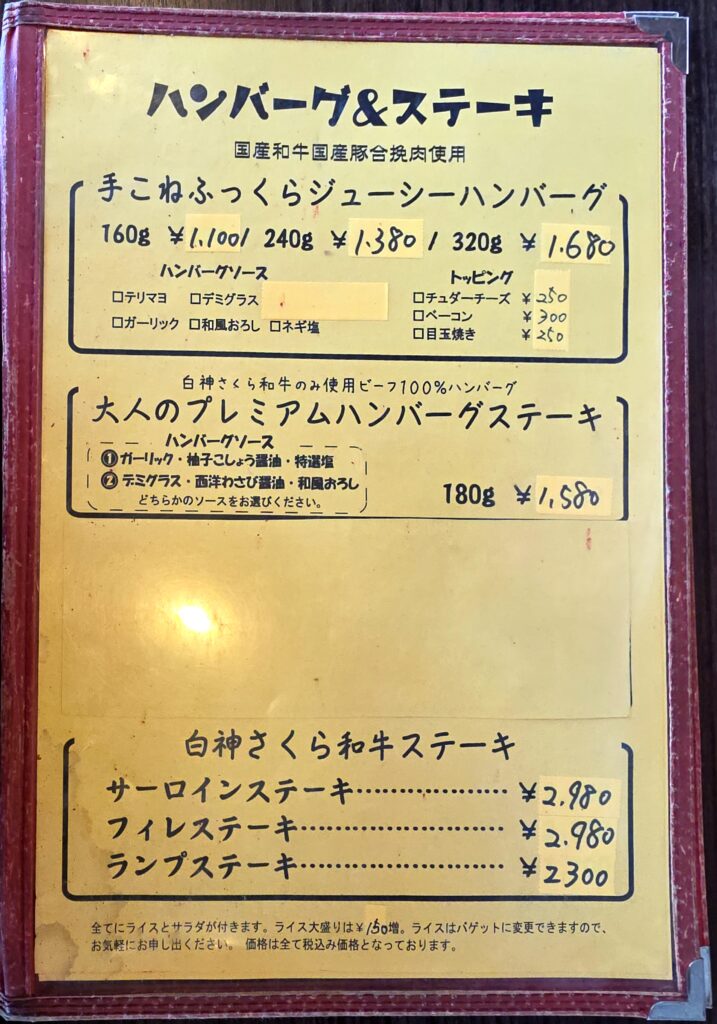 ハンバーグ&ステーキ
国産和牛国産豚合挽肉使用
手こねふっくらジューシーハンバーグ
160g ¥1.100/ 240g ¥1.380 / 320g ¥1.680
ハンバーグソース
□テリマヨ □デミグラス
□ガーリック □和風おろし □ネギ塩
トッピング
□チェダーチーズ ¥250
□ベーコン ¥300
□目玉焼き ¥250
白神さくら和牛のみ使用ビーフ100%ハンバーグ
大人のプレミアムハンバーグステーキ
ハンバーグソース
①ガーリック・柚子こしょう醤油・特選塩
②デミグラス・西洋わさび醤油・和風おろし
どちらかのソースをお選びください。
180g ¥1,580
白神さくら和牛ステーキ
サーロインステーキ………………… ¥2.980
フィレステーキ………………… ¥2.980
ランプステーキ………………… ¥2300
全てにライスとサラダが付きます。ライス大盛りは¥150増。ライスはバゲットに変更できますので、
お気軽にお申し出ください。 価格は全て税込み価格となっております。